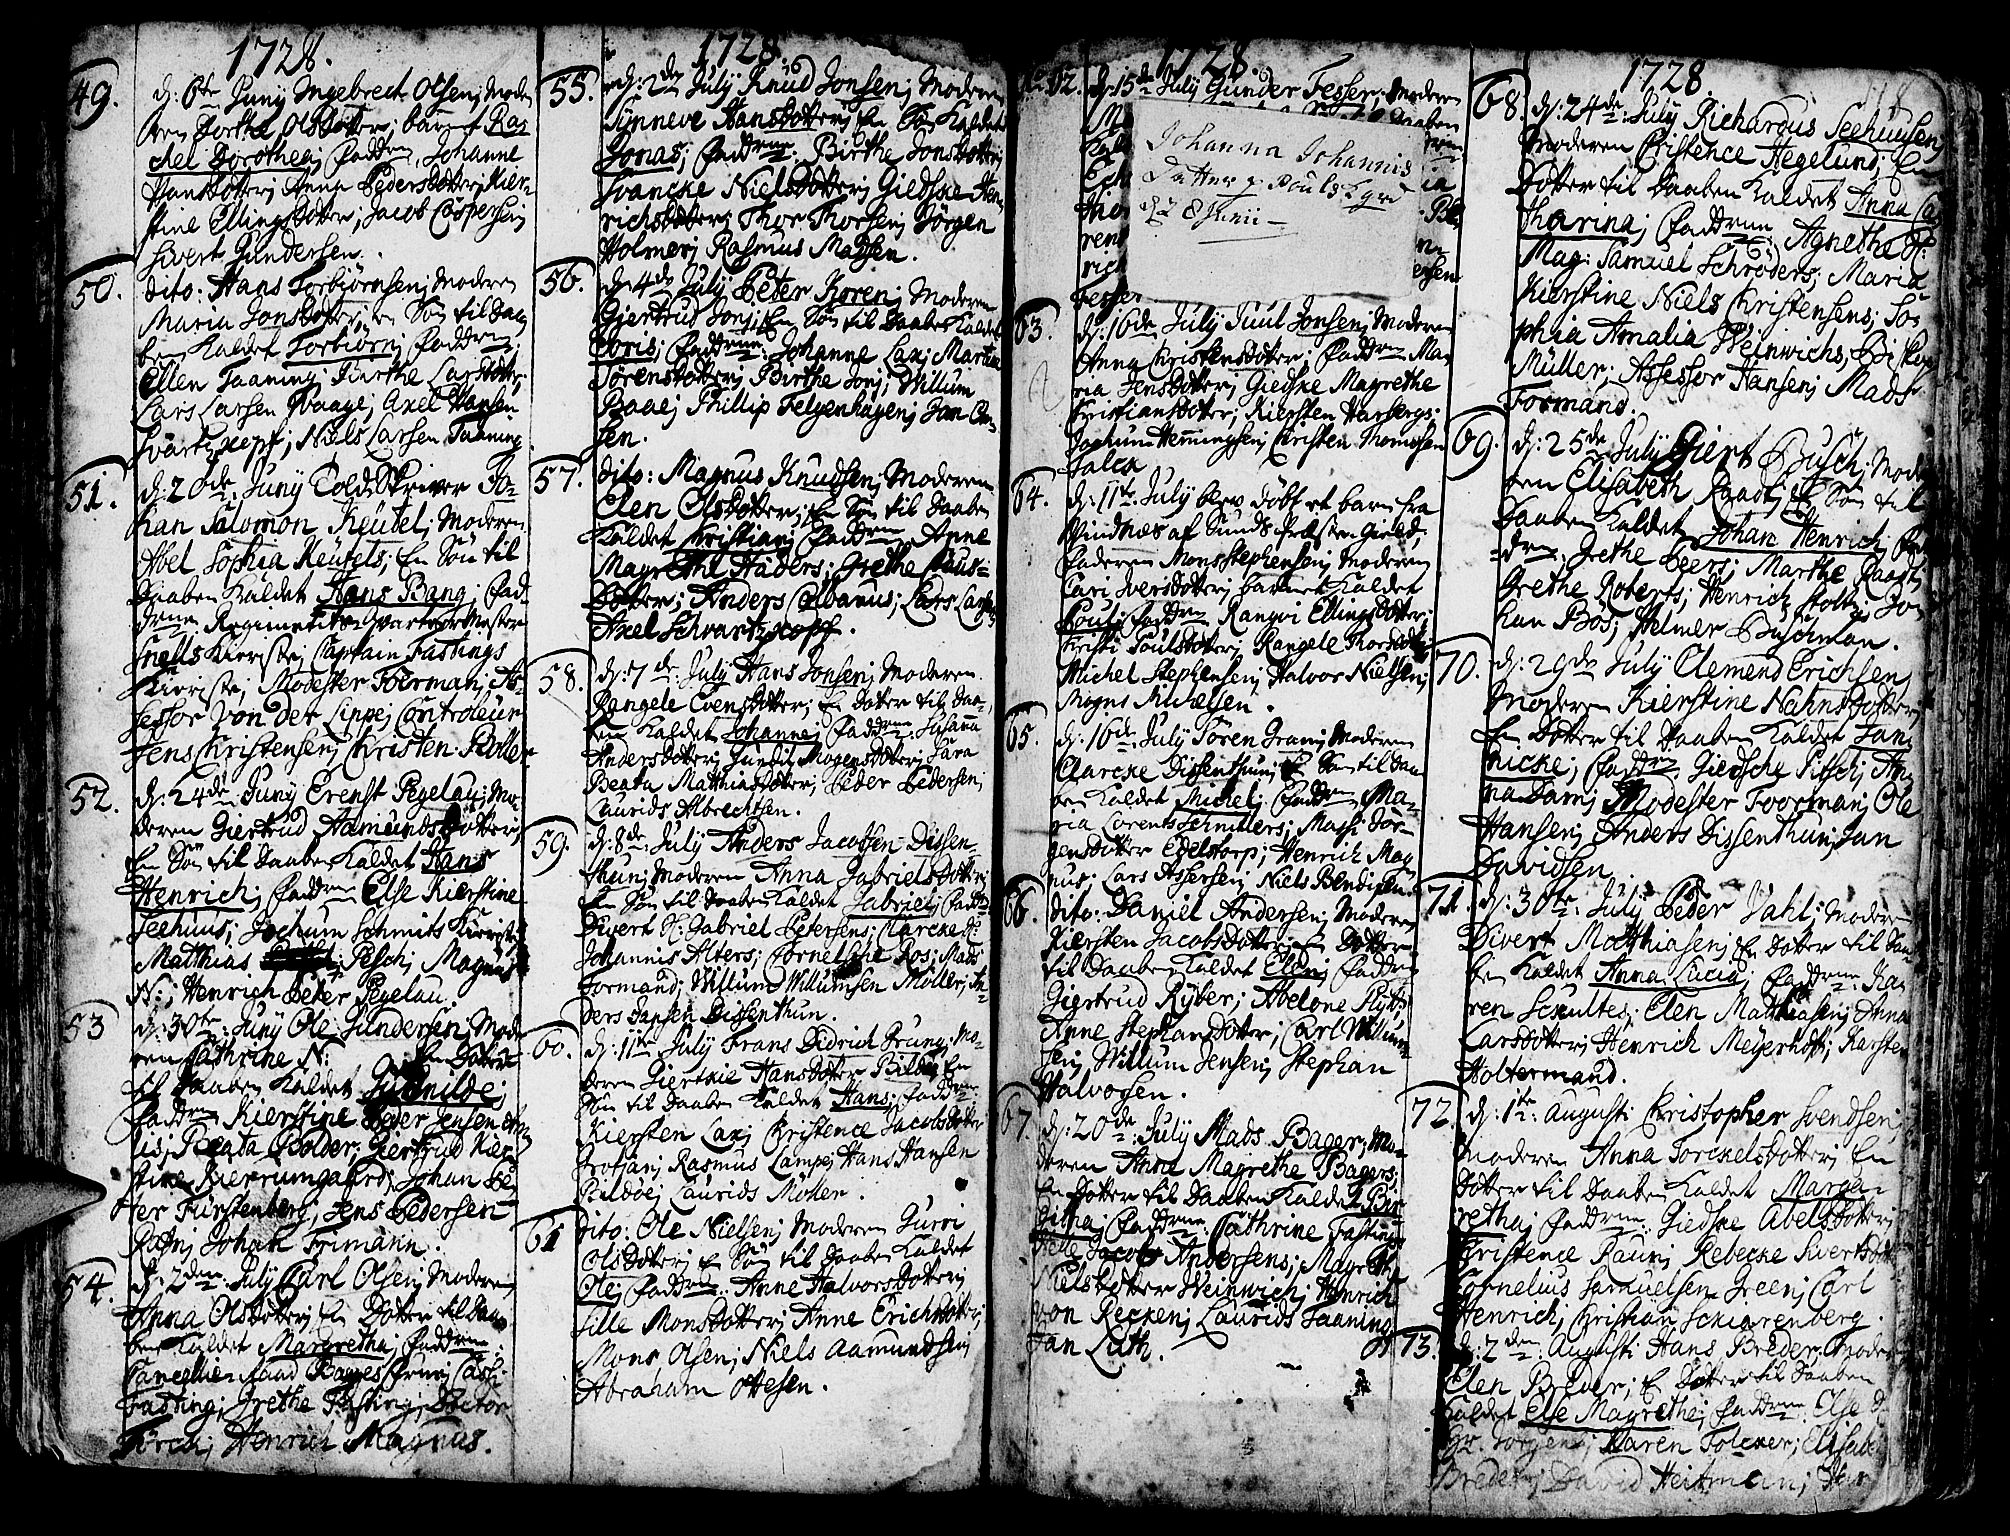 1728.
49. d: 6te Juny Ingebrect Olsen; Mode
ren Dorthe Olsdotter; barnet Ra-
chel Dorothea; Faddrne Johanne
Hansdotter; Anna Pedersdotter; Kier-
stine Ellingsdotter; Jacob Caspersen;
Sivert Gundersen.
50. Dito: Hans Torbiørnsen; Moderen
Maria Jonsdotter; en Søn til Daa-
ben Kaldet Torbiørn; Faddrne:
Ellen Taaning; Birthe Larsdotter;
Lars Larsen Svaage; Axel Hansen
Svartzkopf; Niels Larsen Taaning
51. d: 20de Juny Toldskriver Jo-
han Salomon Keutel; Moderen
Abel Sophia Keutels; En Søn til
Daaben Kaldet Hans Bang; Fad-
drene Regimentz Qvarteermester
Snells Kierste; Captain Fastings
Kierste; Modester Foerman; As-
sessor Von der Lippe; Controleur
Jens Christensen; Christen Roller
52. d: 24de Juny Ernst Pegelau; Mo-
deren Giertrud Aamundsdotter;
En Søn til Daaben Kaldet Hans
Henrich; Faddrne Else Kierstine
Seehuus; Jochum Schmits Kierste;
Matthias Pesch; Magnus
N:; Henrich Peter Pegelau.
53 d: 30te: Juny Ole Gundersen; Mode
ren Cathrine N: En Dotter
til Daaben Kaldet Gunnilde;
Faddrne Kierstine Peder Jensen
Beata Bolder; Giertrud Kier-
stine Kierrumgaard; Johan Pe-
ter Fürstenberg; Jens Pedersen
Johan Frimann.
54. d: 2den July Carl Olsen; Moderen
Anna Olsdotter; En Dotter til Daa-
ben Kaldet Margretha; Faddrne:
Cancellie-Raad Bagges Frue;
Fasting; Grethe Fasting; Doctor
Henrich Magnus.
1728.
55. d: 2den July Knud Jonsen; Moderen
Synneve Hansdotter; En Søn Kaldet
Jonas; Faddrne: Birthe Jonsdotter;
Svancke Nielsdotter; Giedske Hen-
richsdotter; Thor Thorsen; Jørgen
Holmer; Rasmus Madsen.
56. d: 4de July Peter Koren; Moderen
Giertrud Jons; En Søn til Daaben Kaldet
Joris; Faddrne: Johanne Lax; Martha
Sørensdotter; Birthe Jons; Willum
Baae; Phillip Felgenhagen; Jan An-
sen.
57. Dito: Magnus Knudsen; Moderen
Elen Olsdotter; En Søn til Daaben
Kaldet Christian; Faddrne Anne
Magrethe Haders; Grethe Claus-
dotter; Anders Colbanus; Lars Larsen;
Axel Schvartzkopf.
58. d: 7de: July Hans Jonsen; Moderen
Rangele Evensdotter; En Doter til Daa-
ben Kaldet Johanne; Faddrne: Susanna
Andersdotter; Gundil Mogensdotter; Sara
Beata Matthiasdotter; Peder Pedersen;
Laurids Albrechtsen.
59. d: 8de July Anders Jacobsen Dissen-
thun; Moderen Anna Gabrielsdotter;
En Søn til Daaben Kaldet Gabriel; Faddrne
Divert Sl: Gabriel Petersens; Marcke Sl:
Johannis Alters; Cornelsche Ros; Mads
Formand; Willum Willumsen Møller; An-
ders Jansen Dissenthun.
60. d: 11te July Frans Didrich Prung; Mo-
deren Giertkie Hansdotter Bildøe; En
Søn til Daaben Kaldet Hans; Faddrne:
Kiersten Lax; Christence Jacobsdotter
Trotjan; Rasmus Lampe; Hans Hansen
Bildøe; Laurids Möller.
61 Dito: Ole Nielsen; Moderen Gurri
Olsdotter; En Søn til Daaben Kaldet
Ole; Faddrne: Anne Halvorsdotter;
Sille Monsdotter; Anne Erichsdotter;
Mons Olsen; Niels Aamundsen;
Abraham Ottesen.
1728.
No 62. d: 15de July Gunder Fesser; Moderen
Johanna Johannis
Datter
d. 28 Junii
Fesser
63. d: 16de July Juul Jonsen; Moderen
Anna Christensdotter; Faddrne Ma-
ria Jensdotter; Giedske Magrethe
Christiansdotter; Kiersten Harbergs;
Jochum Henningsen; Christen Thomasen
Falck
64. d: 11te July blev døbt et barn fra
Vindnæs af Sunds Præste Gield,
Faderen Mons Stephensen; Moderen
Cari Iversdotter; barnet Kaldet
Poul; Faddrne Rangvi Ellingsdotter;
Kristi Poulsdotter; Rangele Thorsdotter;
Michel Stephensen; Halvor Nielsen;
Mogns Michelsen.
65. d: 16de July Søren Gran; Moderen
Clarcke Dissenthun; En Søn til Daa-
ben Kaldet Michel; Faddrne Ma-
ria Lorents Schnitlers; Massi Jør-
gensdotter Edelstorp; Henrich Mag-
nus; Lars Assersen; Niels Bendixen.
66. Dito: Daniel Andersen; Moderen
Kiersten Jacobsdotter; En Dotter
til Daaben Kaldet Elen; Faddrne
Giertrud Ryber; Abelone Flyt;
Anne Stephansdotter; Carl Willum-
sen; Willum Jensen; Stephan
Halvorsen.
67. d: 20de July Mads Bager; Mo-
deren Anna Magrethe Bagers;
En Dotter til Daaben Kaldet Bir-
githa; Faddrne: Cathrine Fastings;
Pelle Jacob Andersens; Magrethe
Nielsdotter Weinwich; Henrich
von Recken; Laurids Taaning
Jan Luth.
1728
118
68. d: 24de: July Richardus Seehuusen;
Moderen Christence Hegelund; En
Dotter til Daaben Kaldet Anna Ca-
tharina; Faddrne: Agnetha Sl:
Mag: Samuel Schrøders; Maria
Kierstine Niels Christensens; So-
phia Amalia Weinwichs; Biskop
Müller; Assessor Hansen; Mads
Formand.
69. d: 25de July Giert Busch; Mode
ren Elisabeth Paadt; En Søn til
Daaben Kaldet Johan Henrich; Fad-
drne: Grethe Beers; Marthe Paadt;
Grethe Roberts; Henrich Stoltz; Jo-
han Bøs; Helmer Buschman.
70. d: 29de July Clemend Erichsen;
Moderen Kierstine Nahnsdotter;
En Dotter til Daaben Kaldet Jan-
nicke; Faddrne Giedsche Pitsch; An-
na Dam; Modester Foorman; Ole
Hansen; Anders Dissenthun; Jan
Davidsen.
71. d: 30te: July Peder Dahl; Moderen
Divert Matthiasen; En Dotter til Daa-
ben Kaldet Anna Lucia; Faddrne: Ka-
ren Schultes; Elen Matthiasen; Anna
Larsdotter; Henrich Meyerhoff; Karsten
Holtermand.
72. d: 1te: Augusti Christopher Svendsen;
Moderen Anna Torckelsdotter; En
Dotter til Daaben Kaldet Marga-
retha; Faddrne: Giedske Abelsdotter;
Christence Raun; Rebecke Sivertsdotter
Cornelius Samuelsen Green; Carl
Henrich; Christian Schiarenberg.
73. d: 2den: Augusti Hans Breder; Moderen
Elen Breder; En Dotter til Daaben
Kaldet Else Magrethe; Faddrne: Else
Jørgens; Karen Folcker; Elisabet
Breder; David Heitman; Har